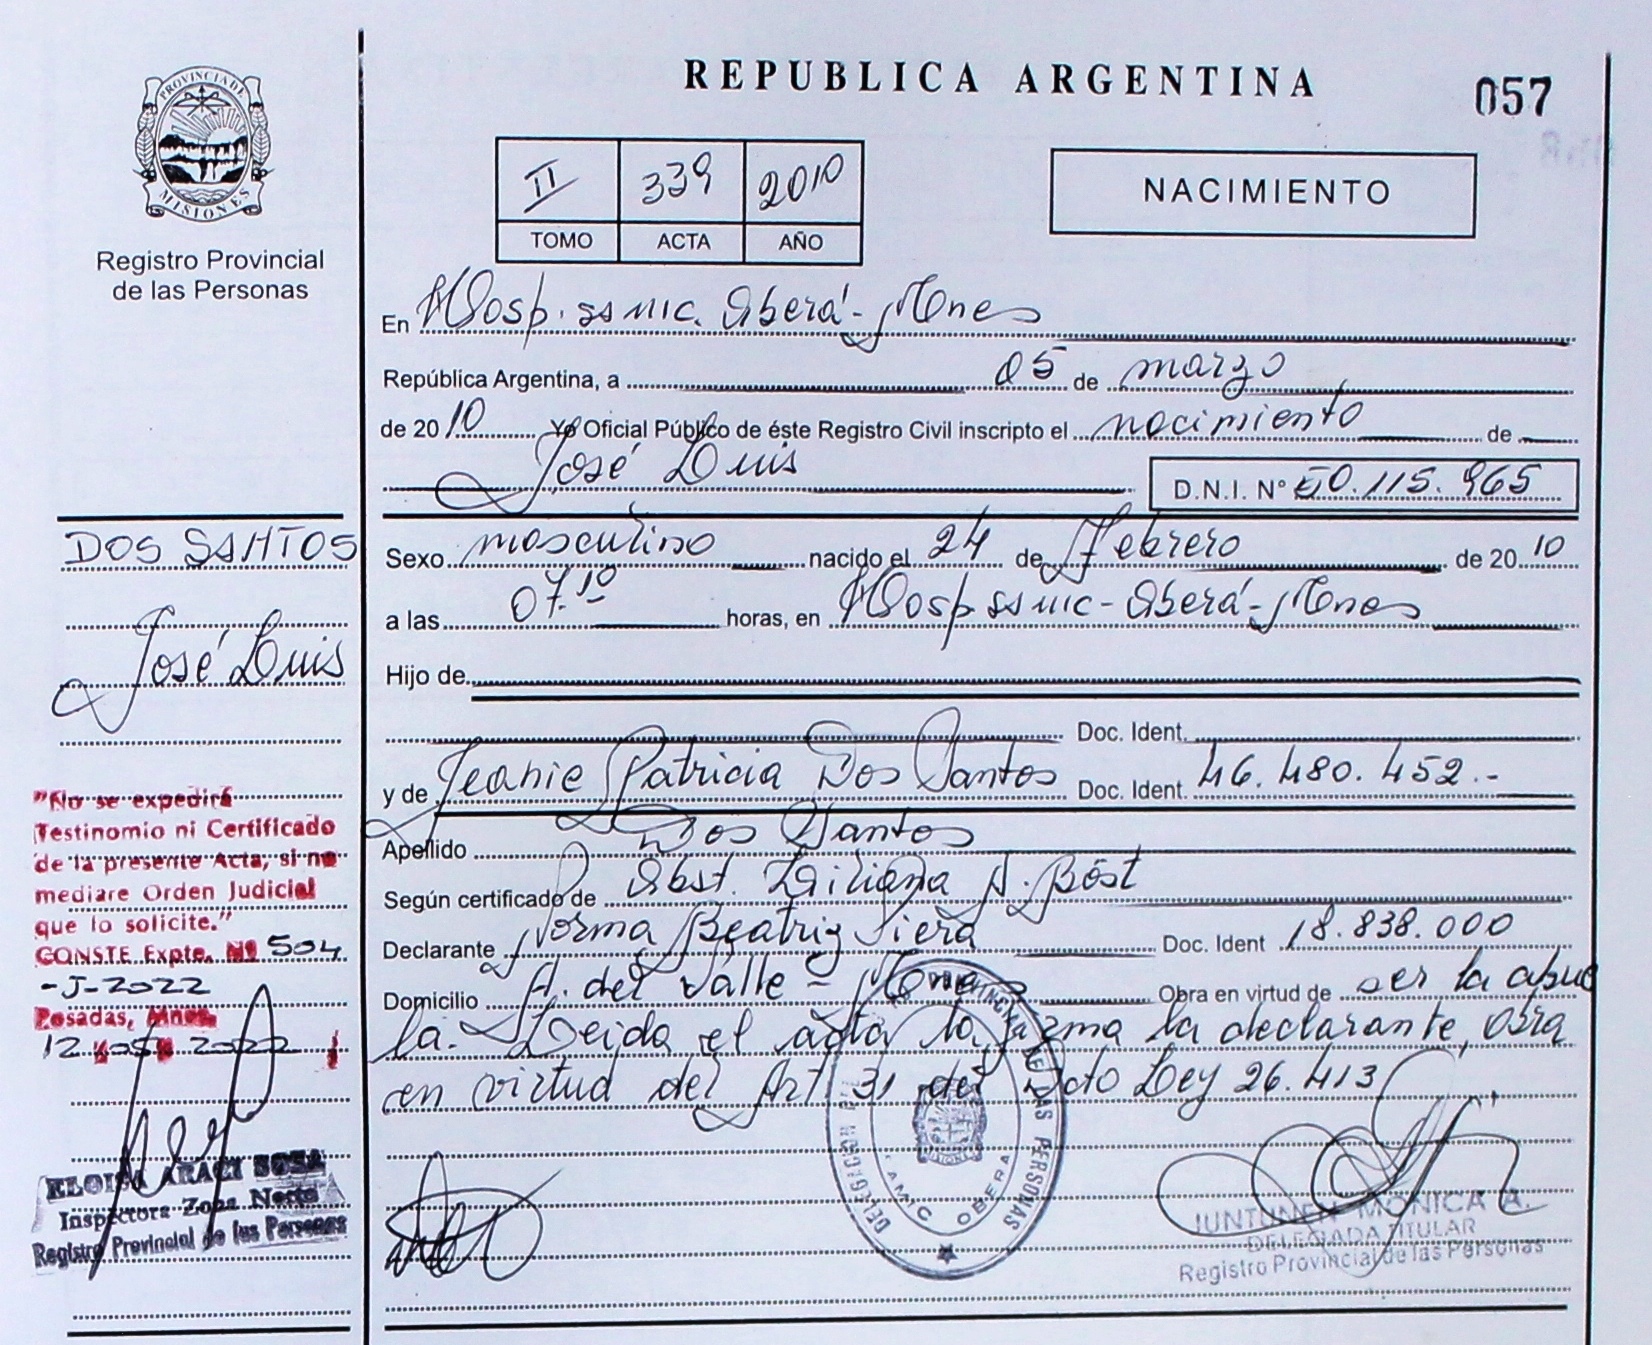 REPUBLICA ARGENTINA
057
PROVINCIA DE
MISIONES
Registro Provincial
de las Personas
II 339 2010
TOMO ACTA AÑO
NACIMIENTO
En Hosp. ssmic. Oberá - Mnes
República Argentina, a 05 de marzo
de 2010 Yo Oficial Público de éste Registro Civil inscripto el nacimiento de
José Luis
D.N.I. Nº 50.115.965
Sexo masculino nacido el 24 de Febrero de 2010
a las 07.10 horas, en Hosp ssmic - Oberá - Mnes
Hijo de
Doc. Ident.
y de Jeanie Patricia Dos Santos Doc. Ident. 46.480.452.-
Apellido Dos Santos
Según certificado de Obst. Liliana A. Böst
Declarante Norma Beatriz Piera Doc. Ident 18.838.000
Domicilio A. del Valle - Mnes Obra en virtud de ser la abue
la. Leida el acta la firma la declarante, obra
en virtud del Art. 31 del Dcto Ley 26.413
DOS SANTOS
José Luis
"No se expedirá
Testinomio ni Certificado
de la presente Acta, si no
mediare Orden Judicial
que lo solicite."
CONSTE Expte. Nº 504
-J-2022
Posadas, Mnes.
12 2022
ELOISA ARACI SOSA
Inspectora Zona Norte
Registro Provincial de las Personas
SAMIC OBERA
JUNTUNEN MONICA A.
DELEGADA TITULAR
Registro Provincial de las Personas